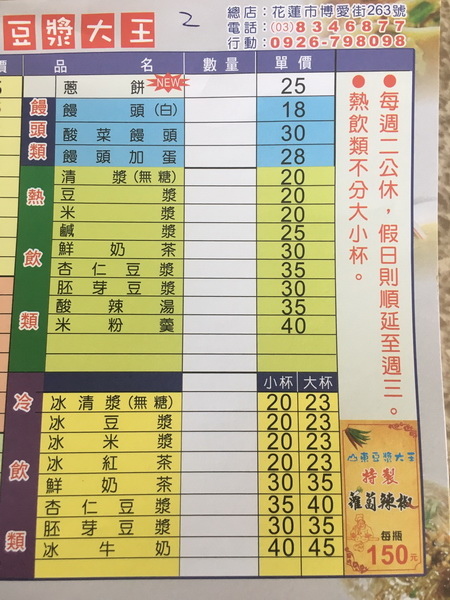 豆漿大王
2
總店：花蓮市博愛街263號
電話：(03)8346877
行動：0926-798098
價 品名 數量 單價
蔥餅 NEW 25
饅頭類
饅頭(白) 18
酸菜饅頭 30
饅頭加蛋 28
熱飲類
清漿(無糖) 20
豆漿 20
米漿 20
鹹漿 25
鮮奶茶 30
杏仁豆漿 35
胚芽豆漿 30
酸辣湯 35
米粉羹 40
冷飲類
小杯 大杯
冰清漿(無糖) 20 23
冰豆漿 20 23
冰米漿 20 23
冰紅茶 20 23
鮮奶茶 30 35
杏仁豆漿 35 40
胚芽豆漿 30 35
冰牛奶 40 45
●每週二公休，假日則順延至週三。
●熱飲類不分大小杯。
山東豆漿大王
特製
蘿蔔辣椒
每瓶
150元